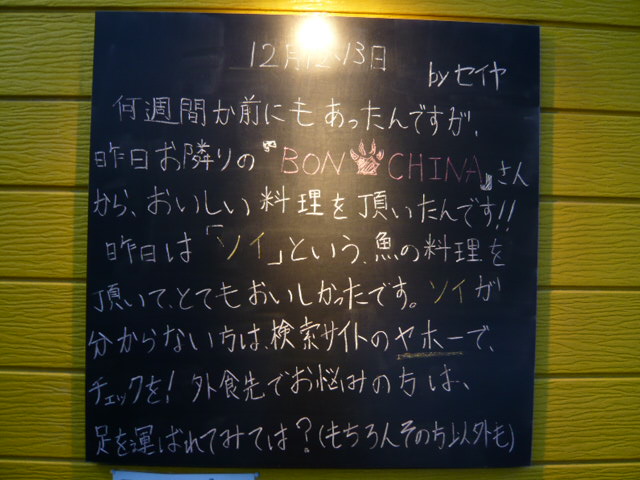 12月12、13日
byセイヤ
何週間か前にもあったんですが、
昨日お隣りの『BON CHINA』さん
から、おいしい料理を頂いたんです!!
昨日は「ソイ」という、魚の料理を
頂いて、とてもおいしかったです。ソイが
分からない方は、検索サイトのヤホーで、
チェックを!外食先でお悩みの方は、
足を運ばれてみては?(もちろんその方以外も)